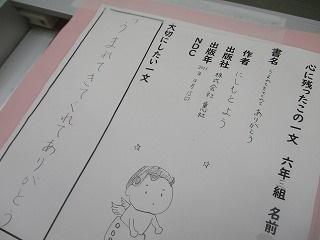 心に残ったこの一文 六年 組 名前
書名 うまれてきてくれてありがとう
作者 にしもとよう
出版社 株式会社 童心社
出版年
NDC
大切にしたい一文
「うまれてきてくれてありがとう